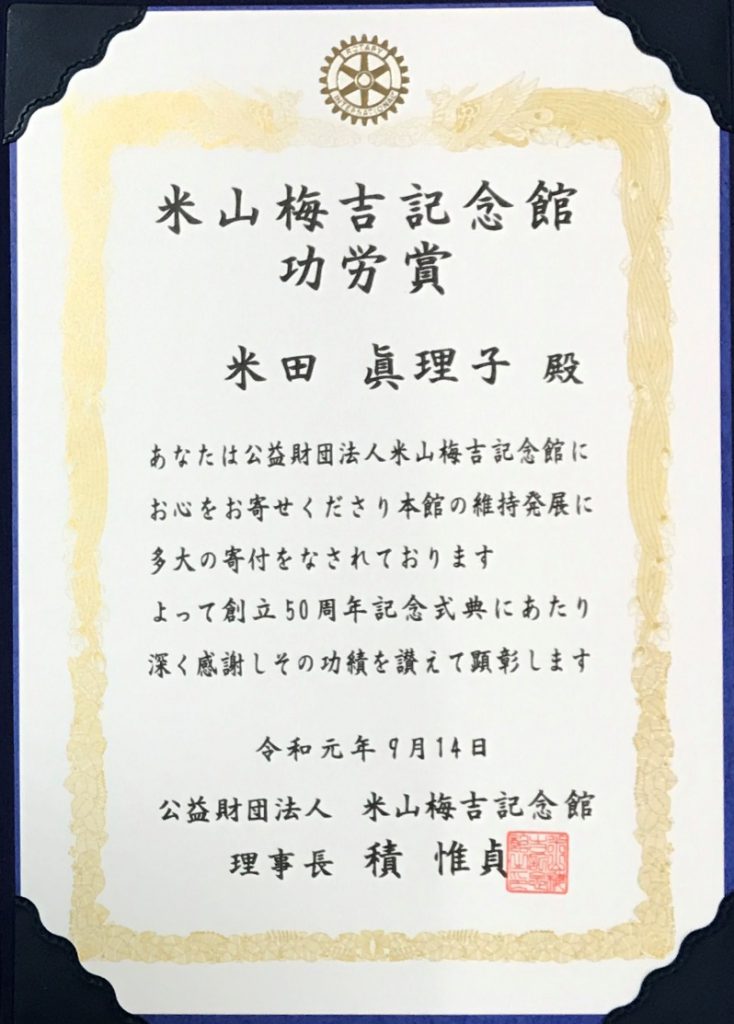 ROTARY
INTERNATIONAL
米山梅吉記念館
功労賞
米田 眞理子 殿
あなたは公益財団法人米山梅吉記念館に
お心をお寄せくださり本館の維持発展に
多大の寄付をなされております
よって創立50周年記念式典にあたり
深く感謝しその功績を讃えて顕彰します
令和元年9月14日
公益財団法人 米山梅吉記念館
理事長 積 惟貞